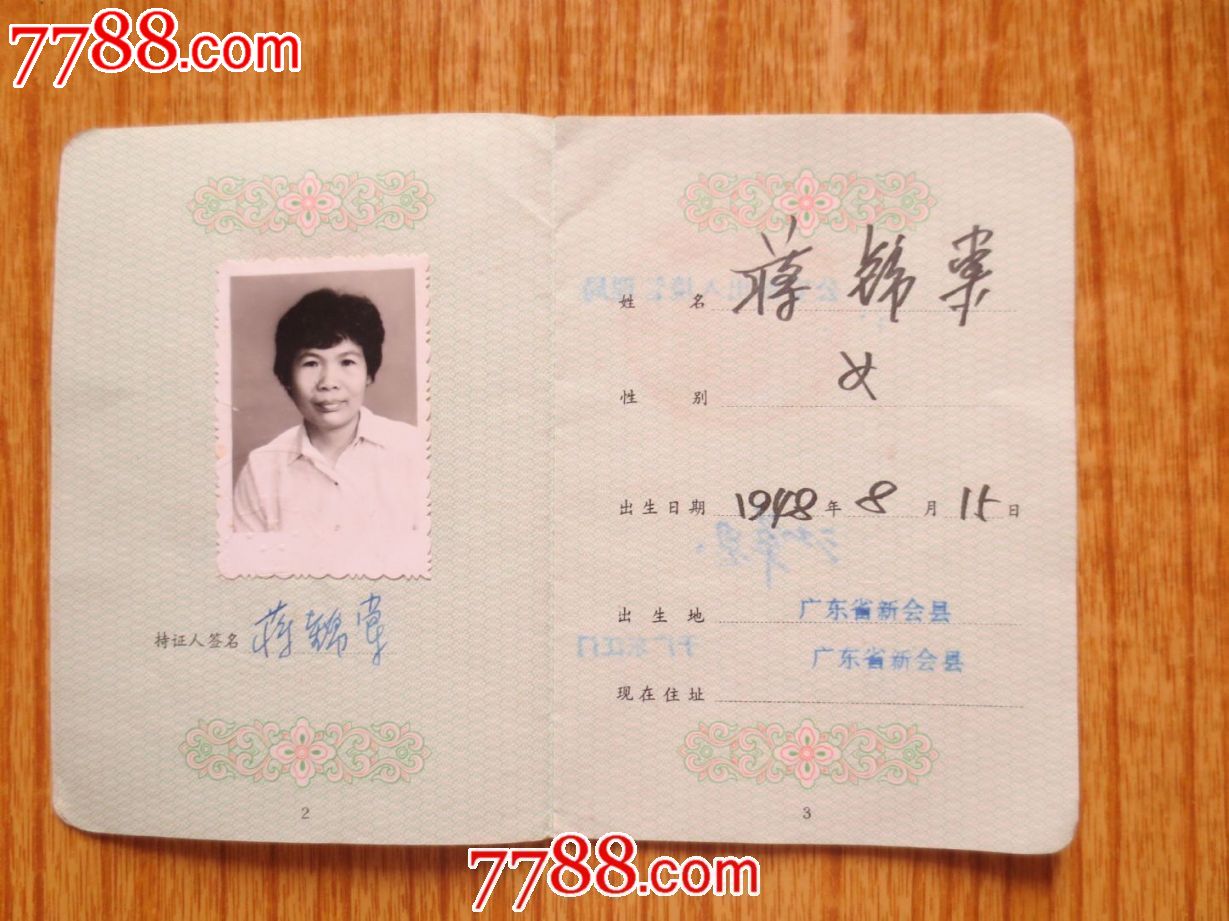 7788.com
姓 名 蒋锦棠
性 别 女
出生日期 1948 年 8 月 15 日
出 生 地 广东省新会县
广东省新会县
现 在 住 址
持证人签名 蒋锦棠
2
3
7788.com